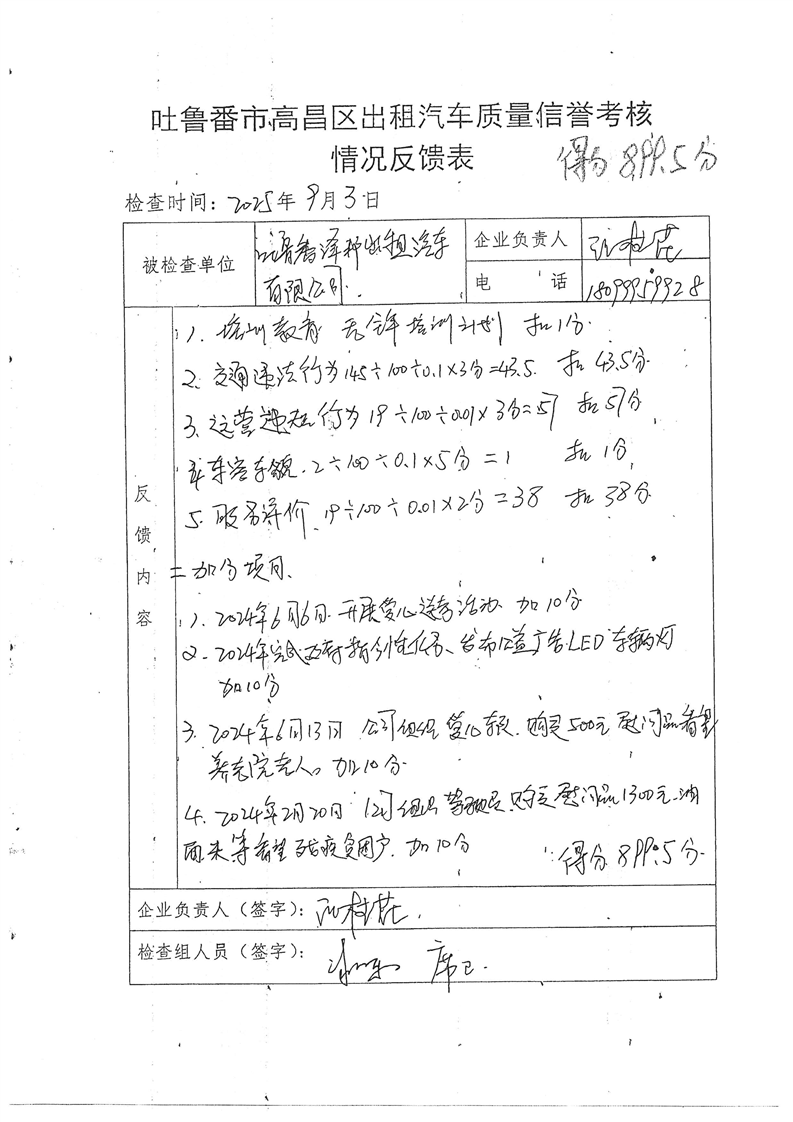 吐鲁番市高昌区出租汽车质量信誉考核
情况反馈表
得分 899.5分
检查时间：2025年9月3日
被检查单位
吐鲁番泽种出租汽车
有限公司
企业负责人
张桂花
电 话
18099959928
反馈内容
1. 培训教育 无全年培训计划 扣1分
2. 交通违法行为 145÷100÷0.1×3分=43.5. 扣 43.5分
3. 运营违规行为 19÷100÷0.01×3分=57 扣57分
4. 车容车貌. 2÷100÷0.1×5分=1 扣1分
5. 服务评价 19÷100÷0.01×2分=38 扣38分
二 加分项目.
1. 2024年6月6日 开展爱心送考活动 加10分
2. 2024年完成政府指令性任务、发布公益广告LED车辆灯
加10分
3. 2024年6月13日 公司组织爱心车队. 购买500元慰问品看望
养老院老人。加10分
4. 2024年2月20日 公司组织驾驶员购买慰问品1300元 油
面米等看望残疾贫困户. 加10分
得分 899.5分
企业负责人（签字）：
检查组人员（签字）：